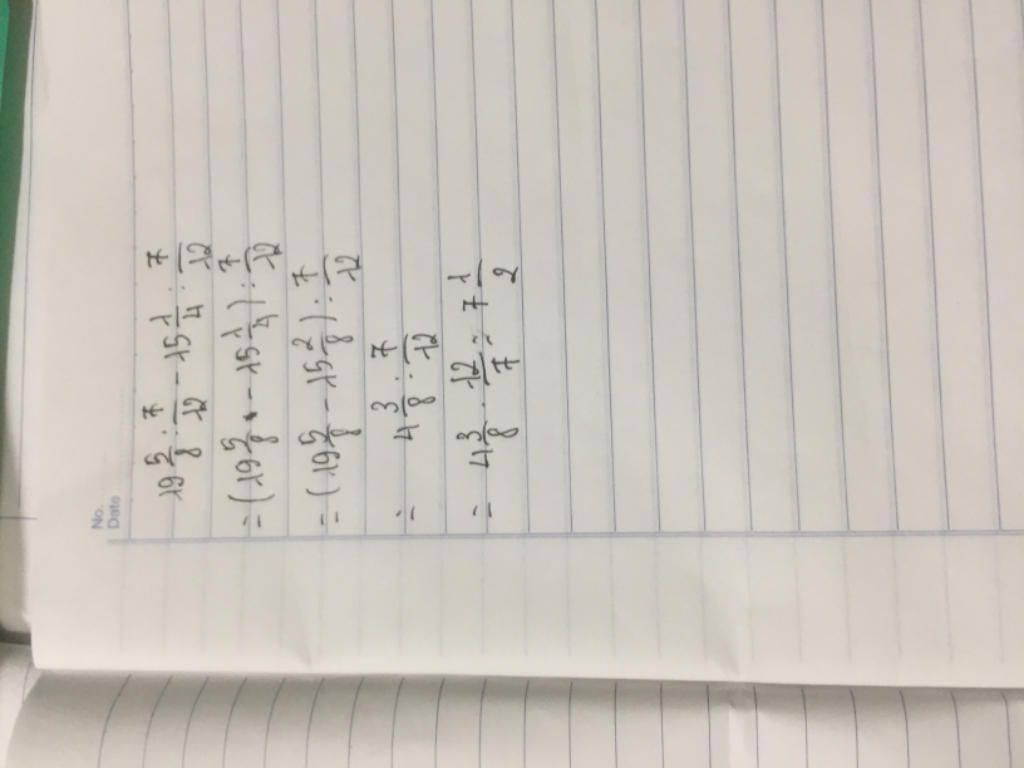 No.
Date
19 5/8 : 7/12 - 15 1/4 : 7/12
= (19 5/8 - 15 1/4) : 7/12
= (19 5/8 - 15 2/8) : 7/12
= 4 3/8 : 7/12
= 4 3/8 . 12/7 = 7 1/2